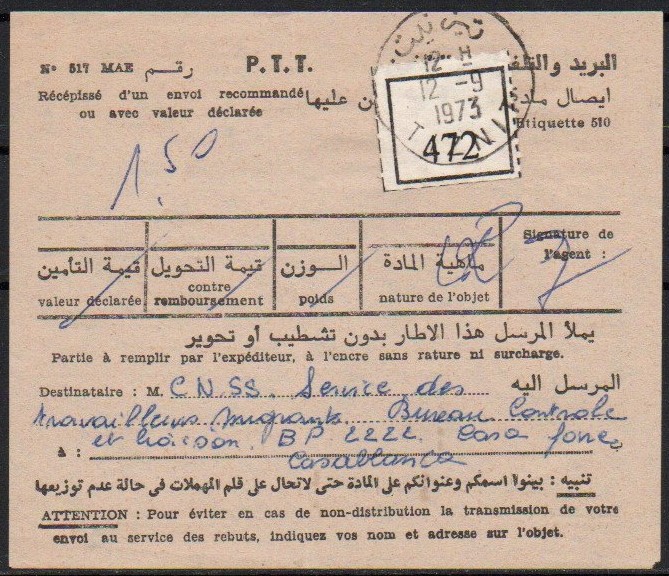 Nº 517 MAE رقم
P.T.T.
البريد والتلف
Récépissé d'un envoi recommandé
ou avec valeur déclarée
ايصال
عليها
Etiquette 510
تيزنيت
12 H
12 -9
1973
TIZNIT
472
1.50
قيمة التأمين
valeur déclarée
قيمة التحويل
contre
remboursement
الـوزن
poids
ماهية المادة
nature de l'objet
Signature de
l'agent :
يملأ المرسل هذا الاطار بدون تشطيب أو تحوير
Partie à remplir par l'expéditeur, à l'encre sans rature ni surcharge.
Destinataire : M. C.N.SS. Service des المرسل اليه
travailleurs migrants. Bureau Controle
à : et liaison. B P 2222. Casa
Casablanca
تنبيه : بينوا اسمكم وعنوانكم على المادة حتى لاتحال على قلم المهملات فى حالة عدم توزيعها
ATTENTION : Pour éviter en cas de non-distribution la transmission de votre
envoi au service des rebuts, indiquez vos nom et adresse sur l'objet.